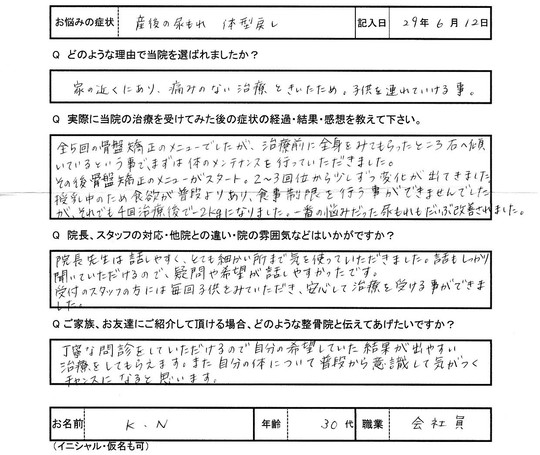 お悩みの症状 産後の尿もれ 体型戻し 記入日 29年6月12日
Q どのような理由で当院を選ばれましたか？
家の近くにあり、痛みのない治療ときいたため。子供を連れていける事。
Q 実際に当院の治療を受けてみた後の症状の経過・結果・感想を教えて下さい。
全5回の骨盤矯正のメニューでしたが、治療前に全身をみてもらったところ右へ傾
いているという事で、まずは体のメンテナンスを行っていただきました。
その後骨盤矯正のメニューがスタート。2～3回位から少しずつ変化が出てきました
授乳中のため食欲が普段よりあり、食事制限を行う事ができませんでした
が、それでも4回治療後で-2kgになりました。一番の悩みだった尿もれもだいぶ改善されました。
Q 院長、スタッフの対応・他院との違い・院の雰囲気などはいかがですか？
院長先生は話しやすく、とても細かい所まで気を使っていただきました。話もしっかり
聞いていただけるので、疑問や希望が話しやすかったです。
受付のスタッフの方には毎回子供をみていただき、安心して治療を受ける事ができま
した。
Q ご家族、お友達にご紹介して頂ける場合、どのような整骨院と伝えてあげたいですか？
丁寧な問診をしていただけるので自分の希望していた結果が出やすい
治療をしてもらえます。また自分の体について普段から意識して気がつく
チャンスになると思います。
お名前 K.N 年齢 30代 職業 会社員
(イニシャル・仮名も可)